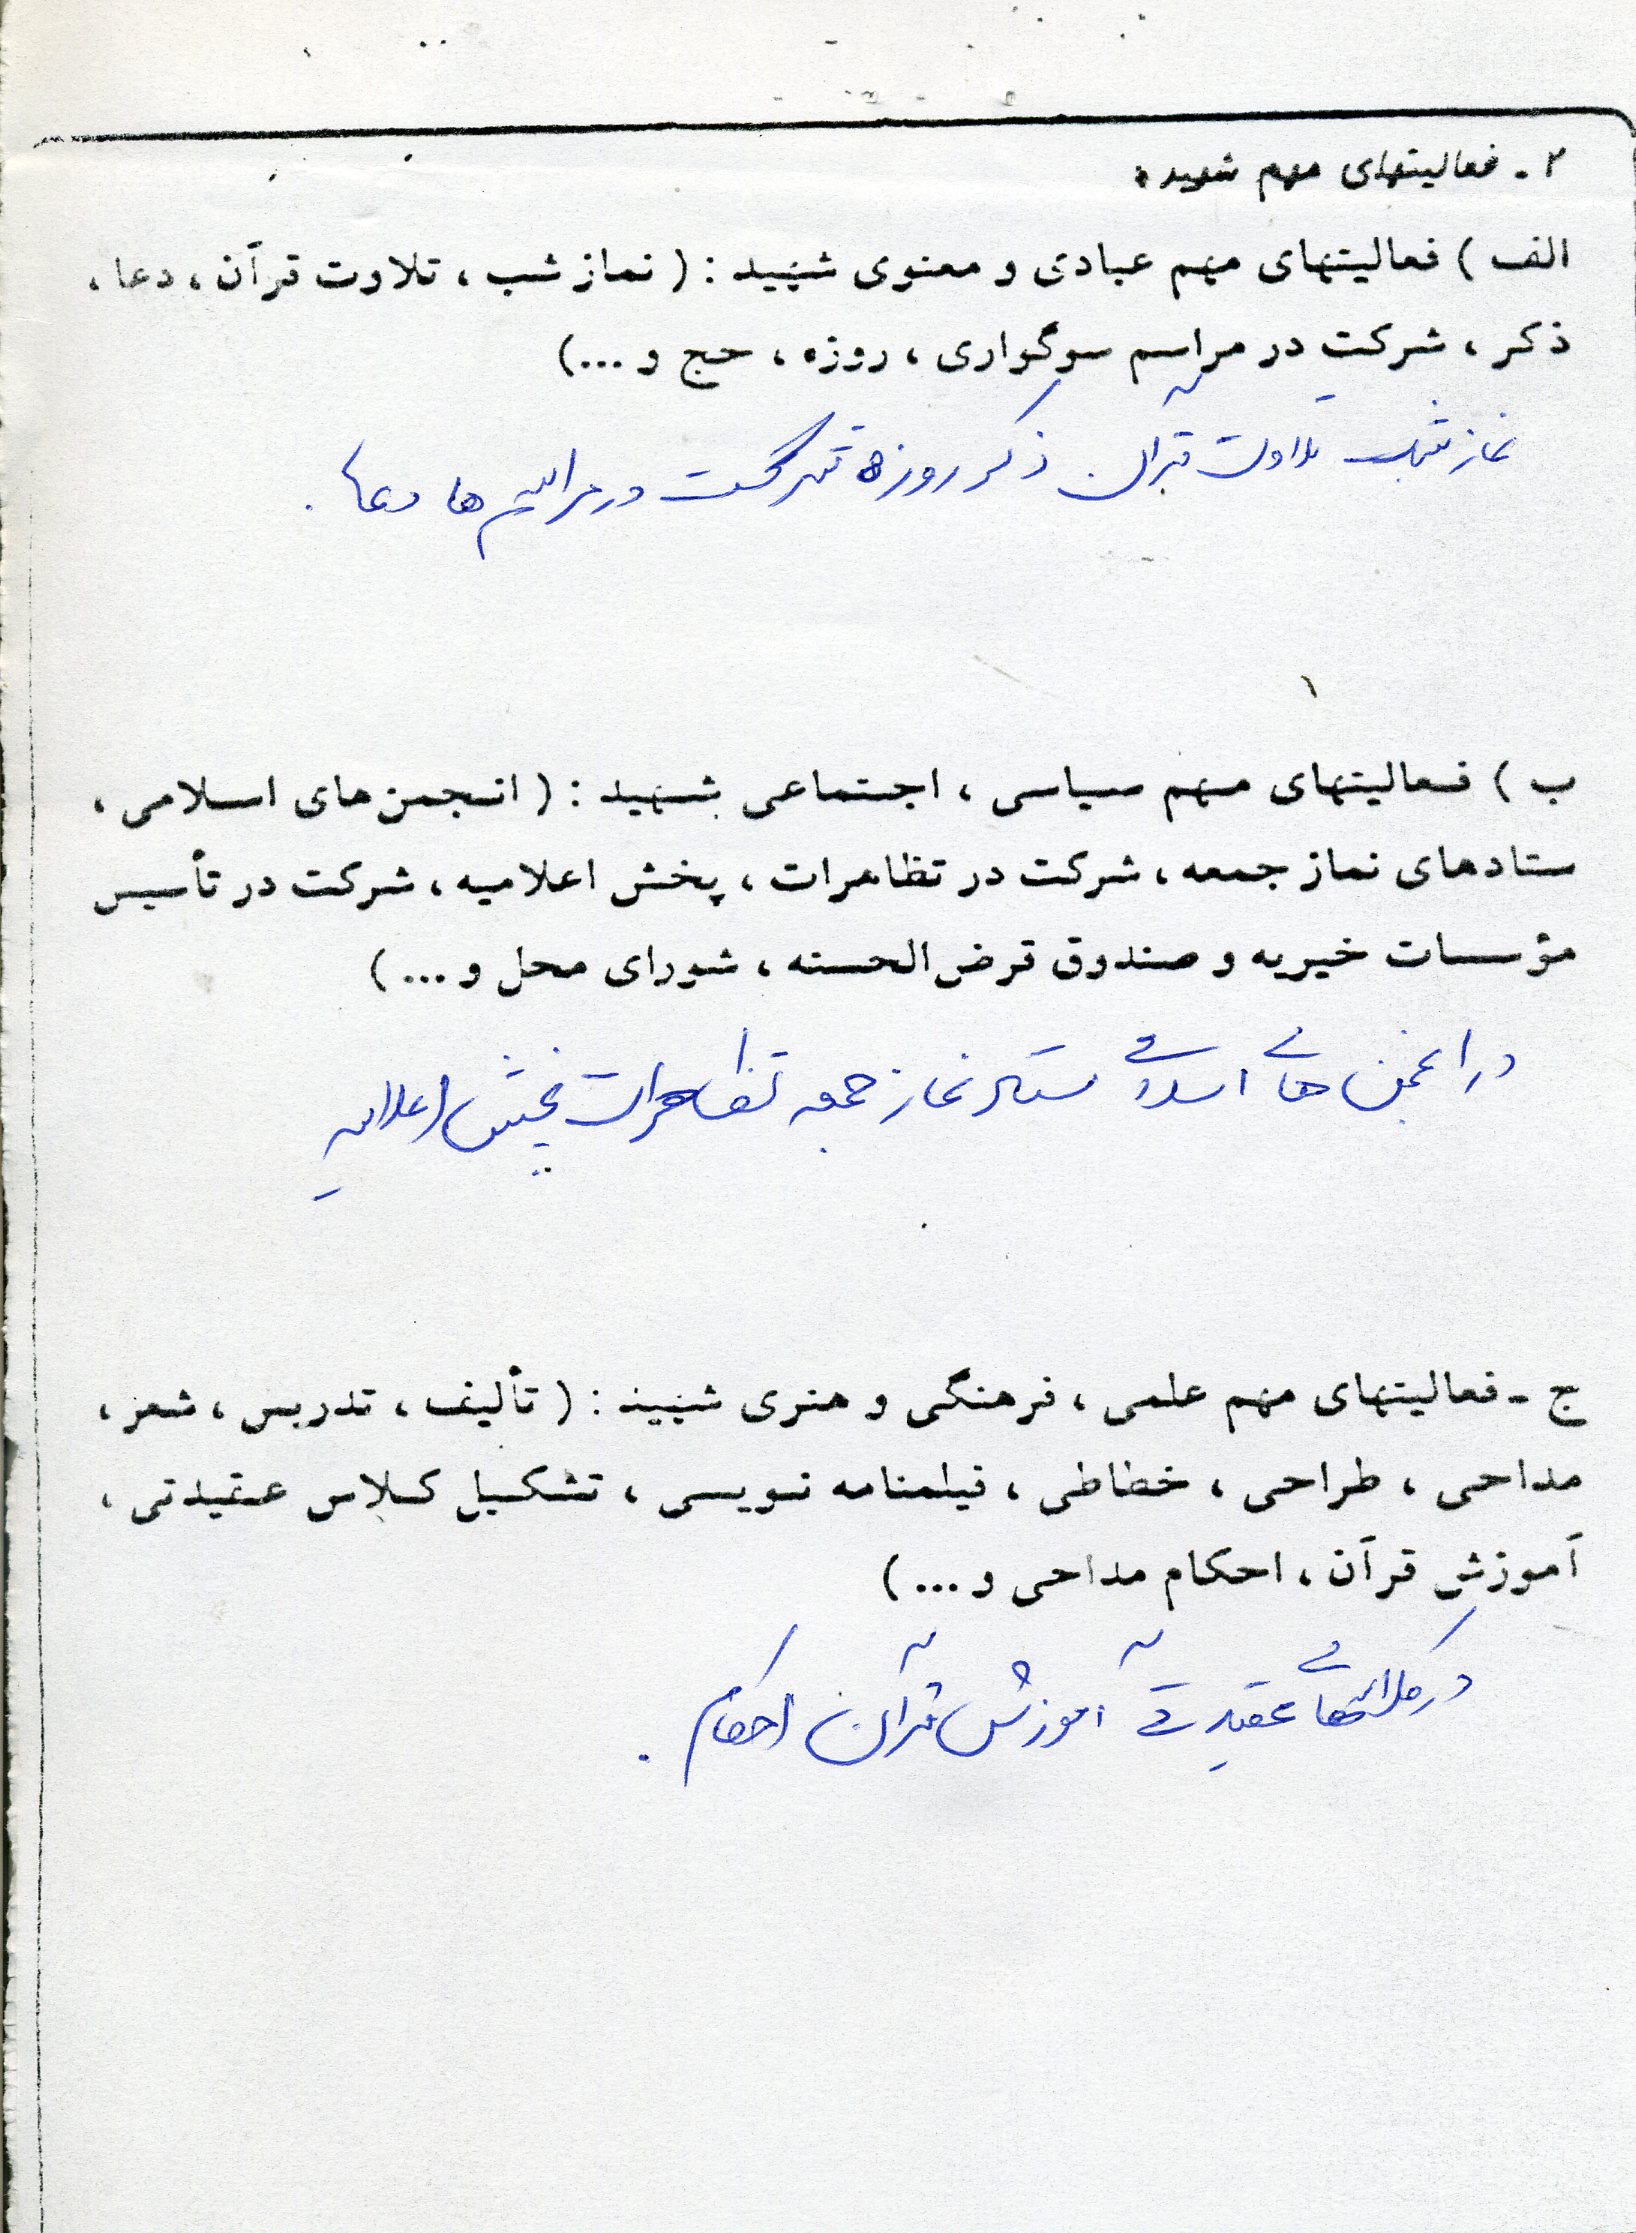 ۲ - فعالیتهای مهم شهید:
الف ) فعالیتهای مهم عبادی و معنوی شهید : ( نماز شب ، تلاوت قرآن ، دعا ،
ذکر ، شرکت در مراسم سوگواری ، روزه ، حج و ...)
نماز شب تلاوت قرآن ذکر روزه شرکت در مراسم ها دعا .
ب ) فعالیتهای مهم سیاسی ، اجتماعی شهید : ( انجمن های اسلامی ،
ستادهای نماز جمعه ، شرکت در تظاهرات ، پخش اعلامیه ، شرکت در تأسیس
مؤسسات خیریه و صندوق قرض الحسنه ، شورای محل و ... )
در انجمن های اسلامی ستاد نماز جمعه تظاهرات پخش اعلامیه
ج - فعالیتهای مهم علمی ، فرهنگی و هنری شهید : ( تألیف ، تدریس ، شعر ،
مداحی ، طراحی ، خطاطی ، فیلمنامه نویسی ، تشکیل کلاس عقیدتی ،
آموزش قرآن ، احکام مداحی و ... )
در کلاسهای عقیدتی آموزش قرآن احکام .